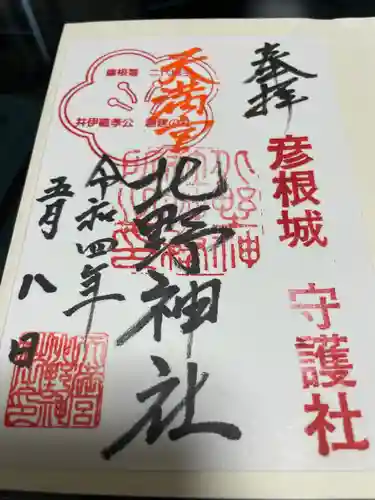 奉拝
彦根城 守護社
天満宮
北野神社
令和四年
五月八日
井伊直孝公